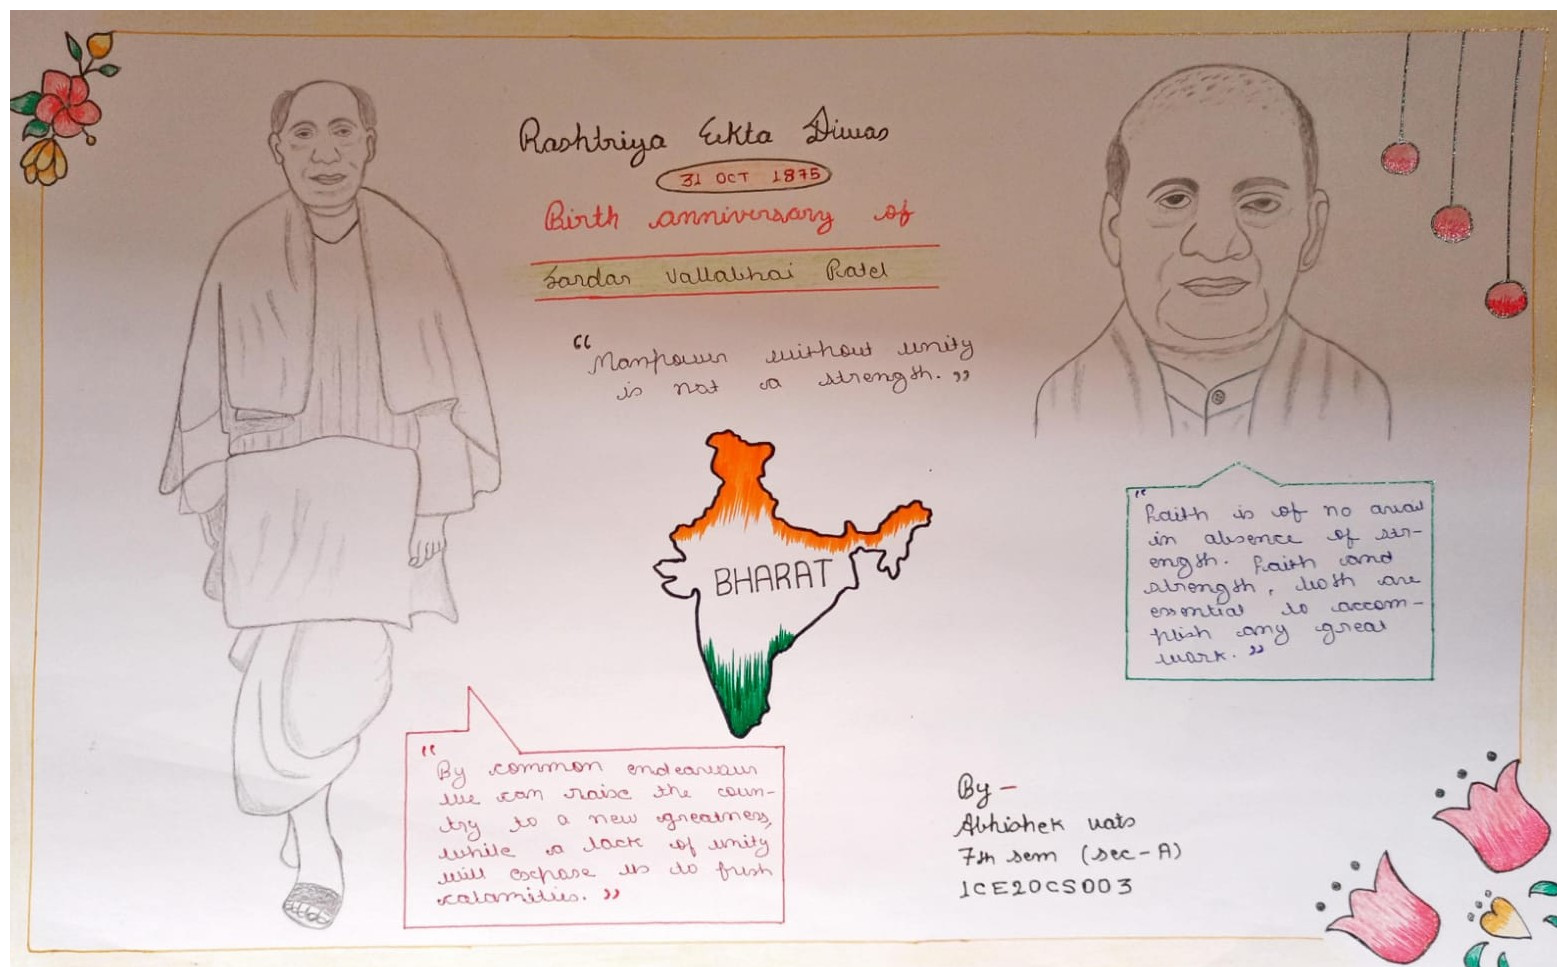 Rashtriya Ekta Diwas
31 OCT 1875
Birth anniversary of
Sardar Vallabhai Patel
"Manpower without unity
is not a strength."
BHARAT
"Faith is of no avail
in absence of str-
ength. Faith and
strength, both are
essential to accom-
plish any great
work."
"By common endeavour
we can raise the coun-
try to a new greatness,
while a lack of unity
will expose us to fresh
calamities."
By -
Abhishek vats
7th sem (sec-A)
1CE20CS003